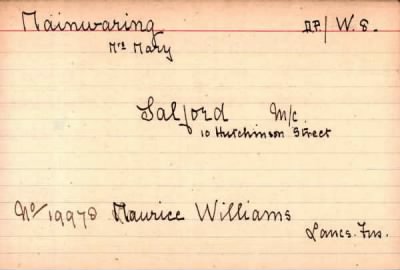 Mainwaring D.P./W.S.
Mrs Mary
Salford M/c.
10 Hutchinson Street
No/19978 Maurice Williams
Lancs. Fus.